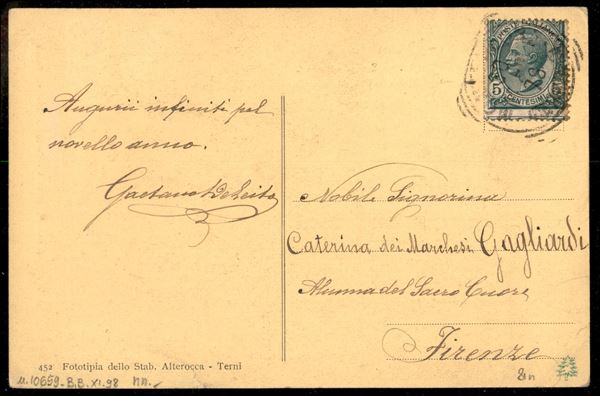 Augurii infiniti pel
novello anno.
Gaetano De Leito
POSTE ITALIANE
5
CENTESIMI
Nobile Signorina
Caterina dei Marchesi Gagliardi
Alunna del Sacro Cuore
Firenze
452 Fototipia dello Stab. Alterocca - Terni
u.10659-B.B.XI.98 nn.-